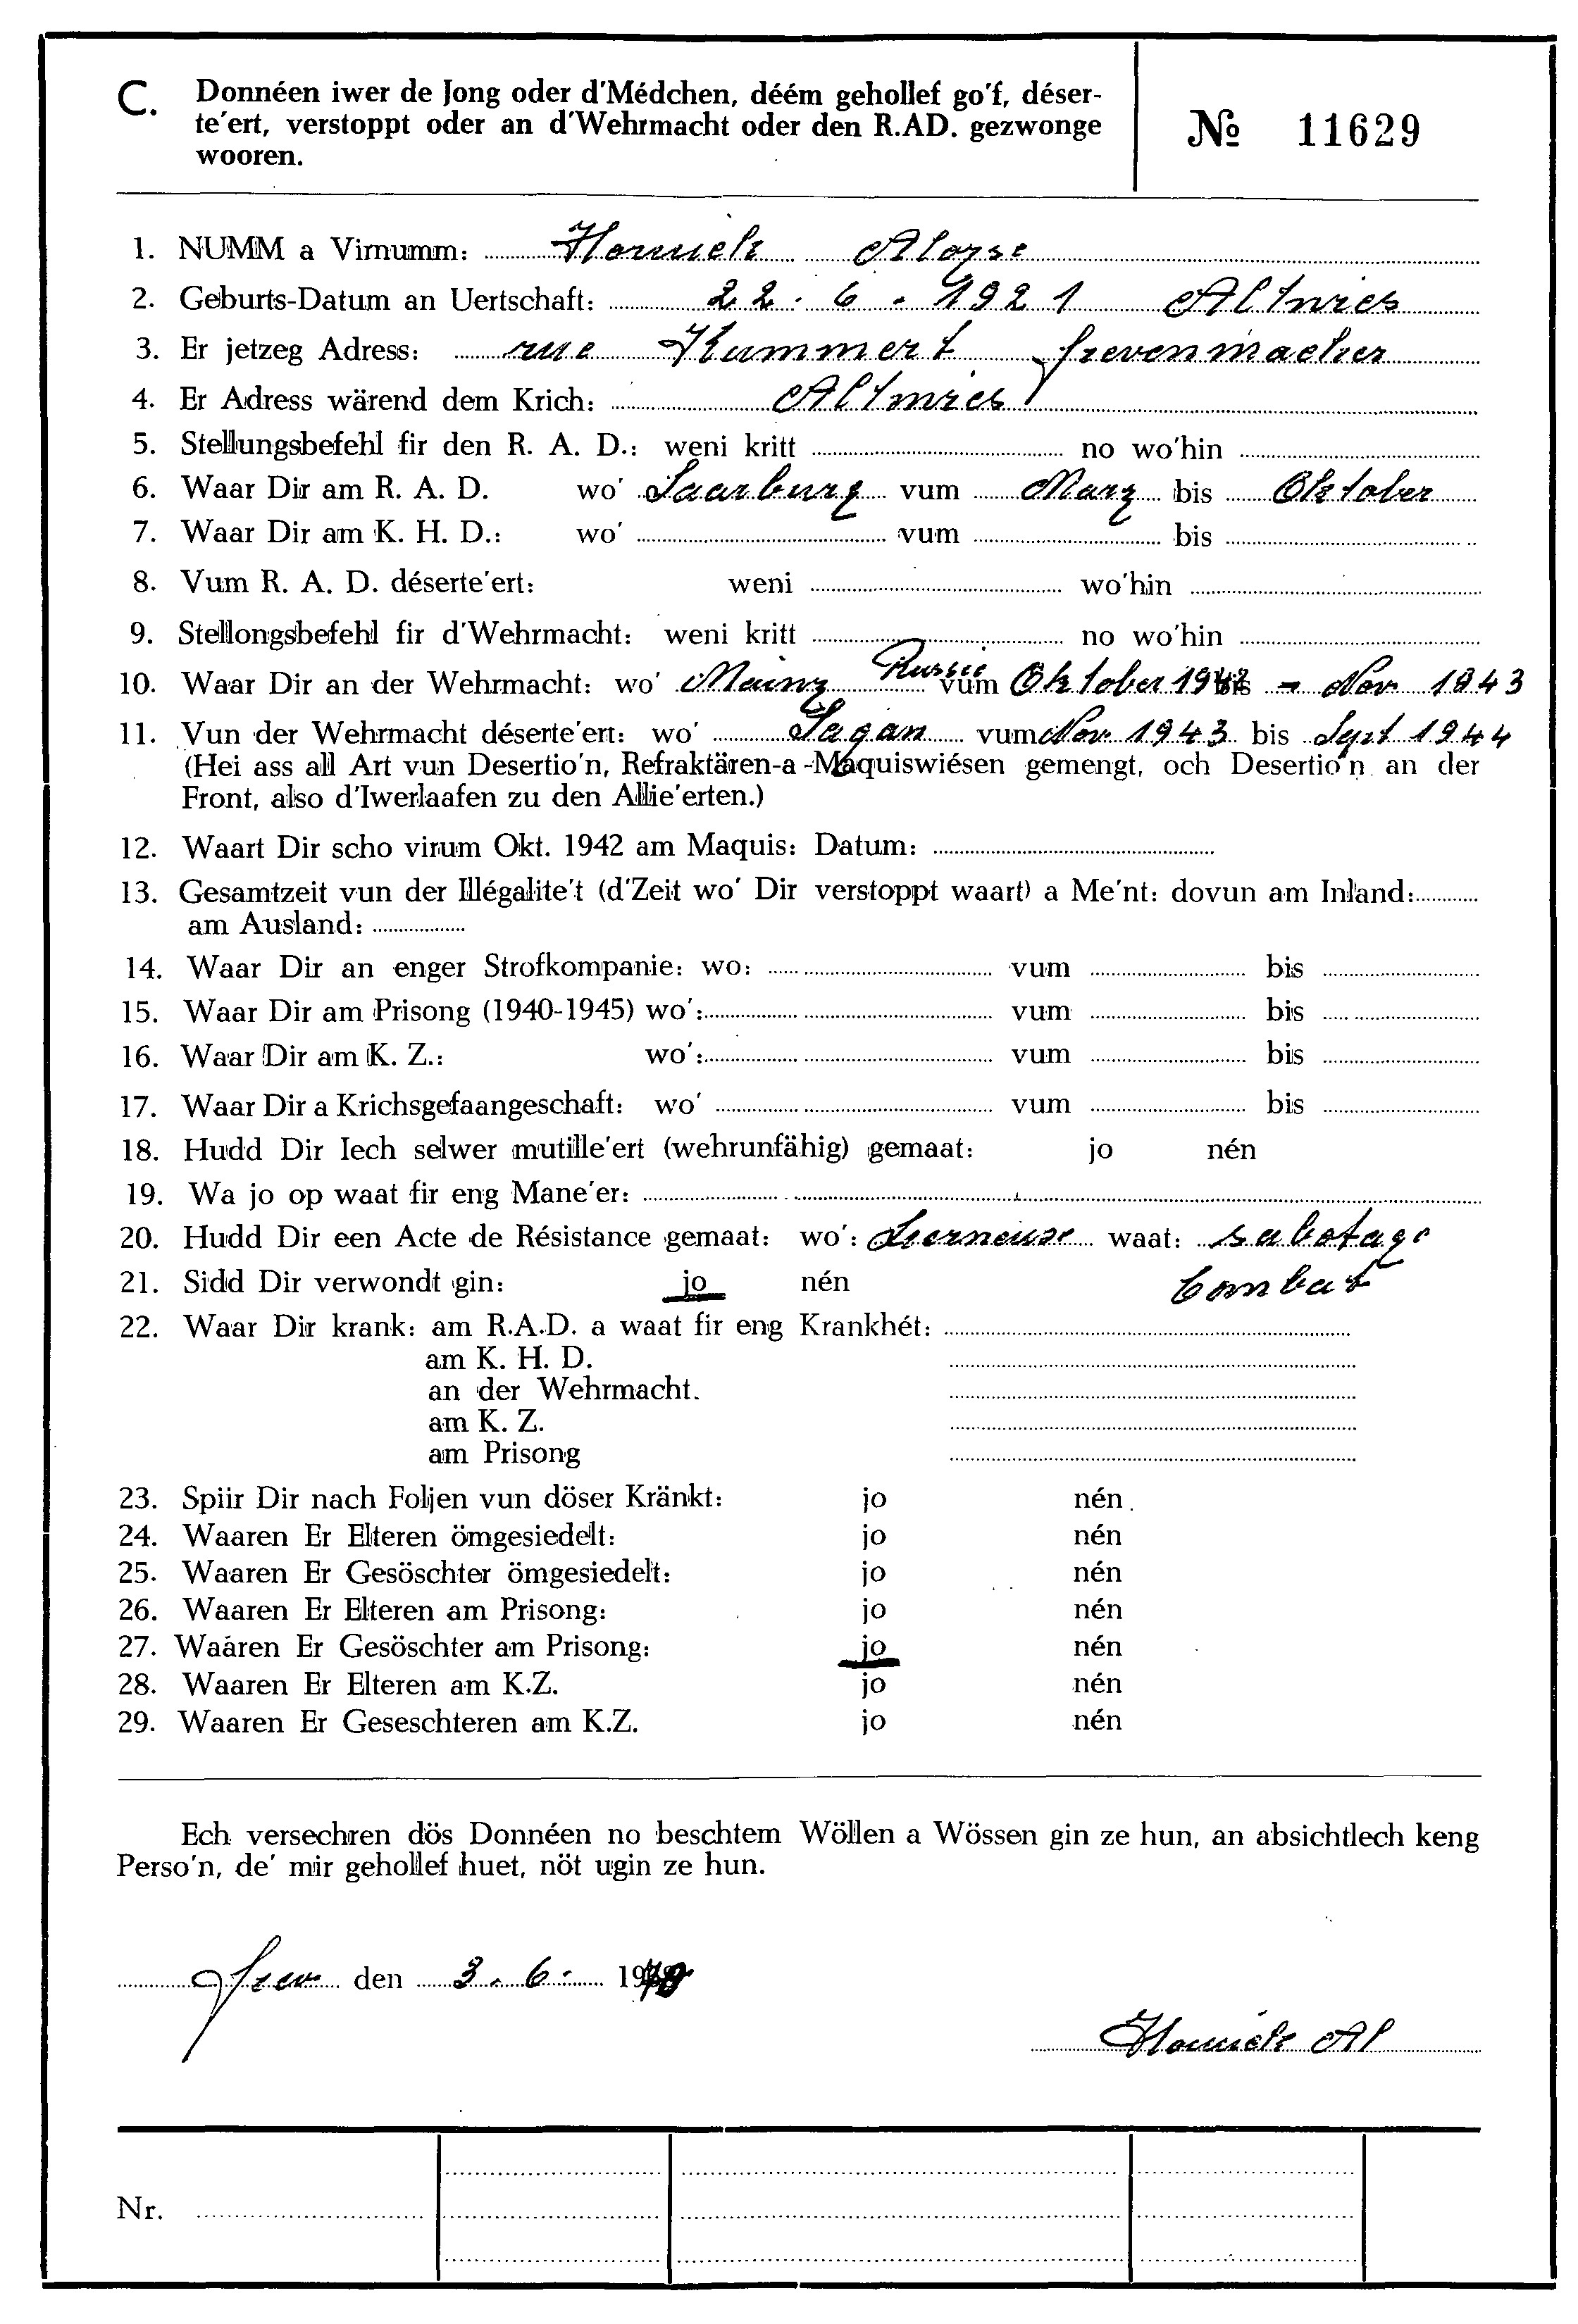 C. Donnéen iwer de Jong oder d'Médchen, déém gehollef go'f, déser-
te'ert, verstoppt oder an d'Wehrmacht oder den R.AD. gezwonge
wooren.
№ 11629
1. NUMM a Virnumm: Aloyse
2. Geburts-Datum an Uertschaft: 22. 6. 1921 Altwies
3. Er jetzeg Adress: rue Kummert Grevenmacher
4. Er Adress wärend dem Krich: Altwies
5. Stellungsbefehl fir den R. A. D.: weni kritt no wo'hin
6. Waar Dir am R. A. D. wo' Saarburg vum Marz bis Oktober
7. Waar Dir am K. H. D.: wo' vum bis
8. Vum R. A. D. déserte'ert: weni wo'hin
9. Stellongsbefehl fir d'Wehrmacht: weni kritt no wo'hin
10. Waar Dir an der Wehrmacht: wo' Mainz Russie vum Oktober 1942 bis - Nov 1943
11. Vun der Wehrmacht déserte'ert: wo' Sagan vum Nov 1943 bis Sept 1944
(Hei ass all Art vun Desertio'n, Refraktären-a-Maquiswiésen gemengt, och Desertio'n an der
Front, also d'Iwerlaafen zu den Allie'erten.)
12. Waart Dir scho virum Okt. 1942 am Maquis: Datum:
13. Gesamtzeit vun der Illégalite't (d'Zeit wo' Dir verstoppt waart) a Me'nt: dovun am Inland:
am Ausland:
14. Waar Dir an enger Strofkompanie: wo: vum bis
15. Waar Dir am Prisong (1940-1945) wo': vum bis
16. Waar Dir am K. Z.: wo': vum bis
17. Waar Dir a Krichsgefaangeschaft: wo' vum bis
18. Hudd Dir Iech selwer mutille'ert (wehrunfähig) gemaat: jo nén
19. Wa jo op waat fir eng Mane'er:
20. Hudd Dir een Acte de Résistance gemaat: wo': Lierneux waat: sabotage
21. Sidd Dir verwondt gin: jo nén Combat
22. Waar Dir krank: am R.A.D. a waat fir eng Krankhét:
am K. H. D.
an der Wehrmacht.
am K. Z.
am Prisong
23. Spiir Dir nach Foljen vun döser Kränkt: jo nén
24. Waaren Er Elteren ömgesiedelt: jo nén
25. Waaren Er Gesöschter ömgesiedelt: jo nén
26. Waaren Er Elteren am Prisong: jo nén
27. Waaren Er Gesöschter am Prisong: jo nén
28. Waaren Er Elteren am K.Z. jo nén
29. Waaren Er Geseschteren am K.Z. jo nén
Ech versechren dös Donnéen no beschtem Wöllen a Wössen gin ze hun, an absichtlech keng
Perso'n, de' mir gehollef huet, nöt ugin ze hun.
Grev den 3. 6. 19
Al
Nr.